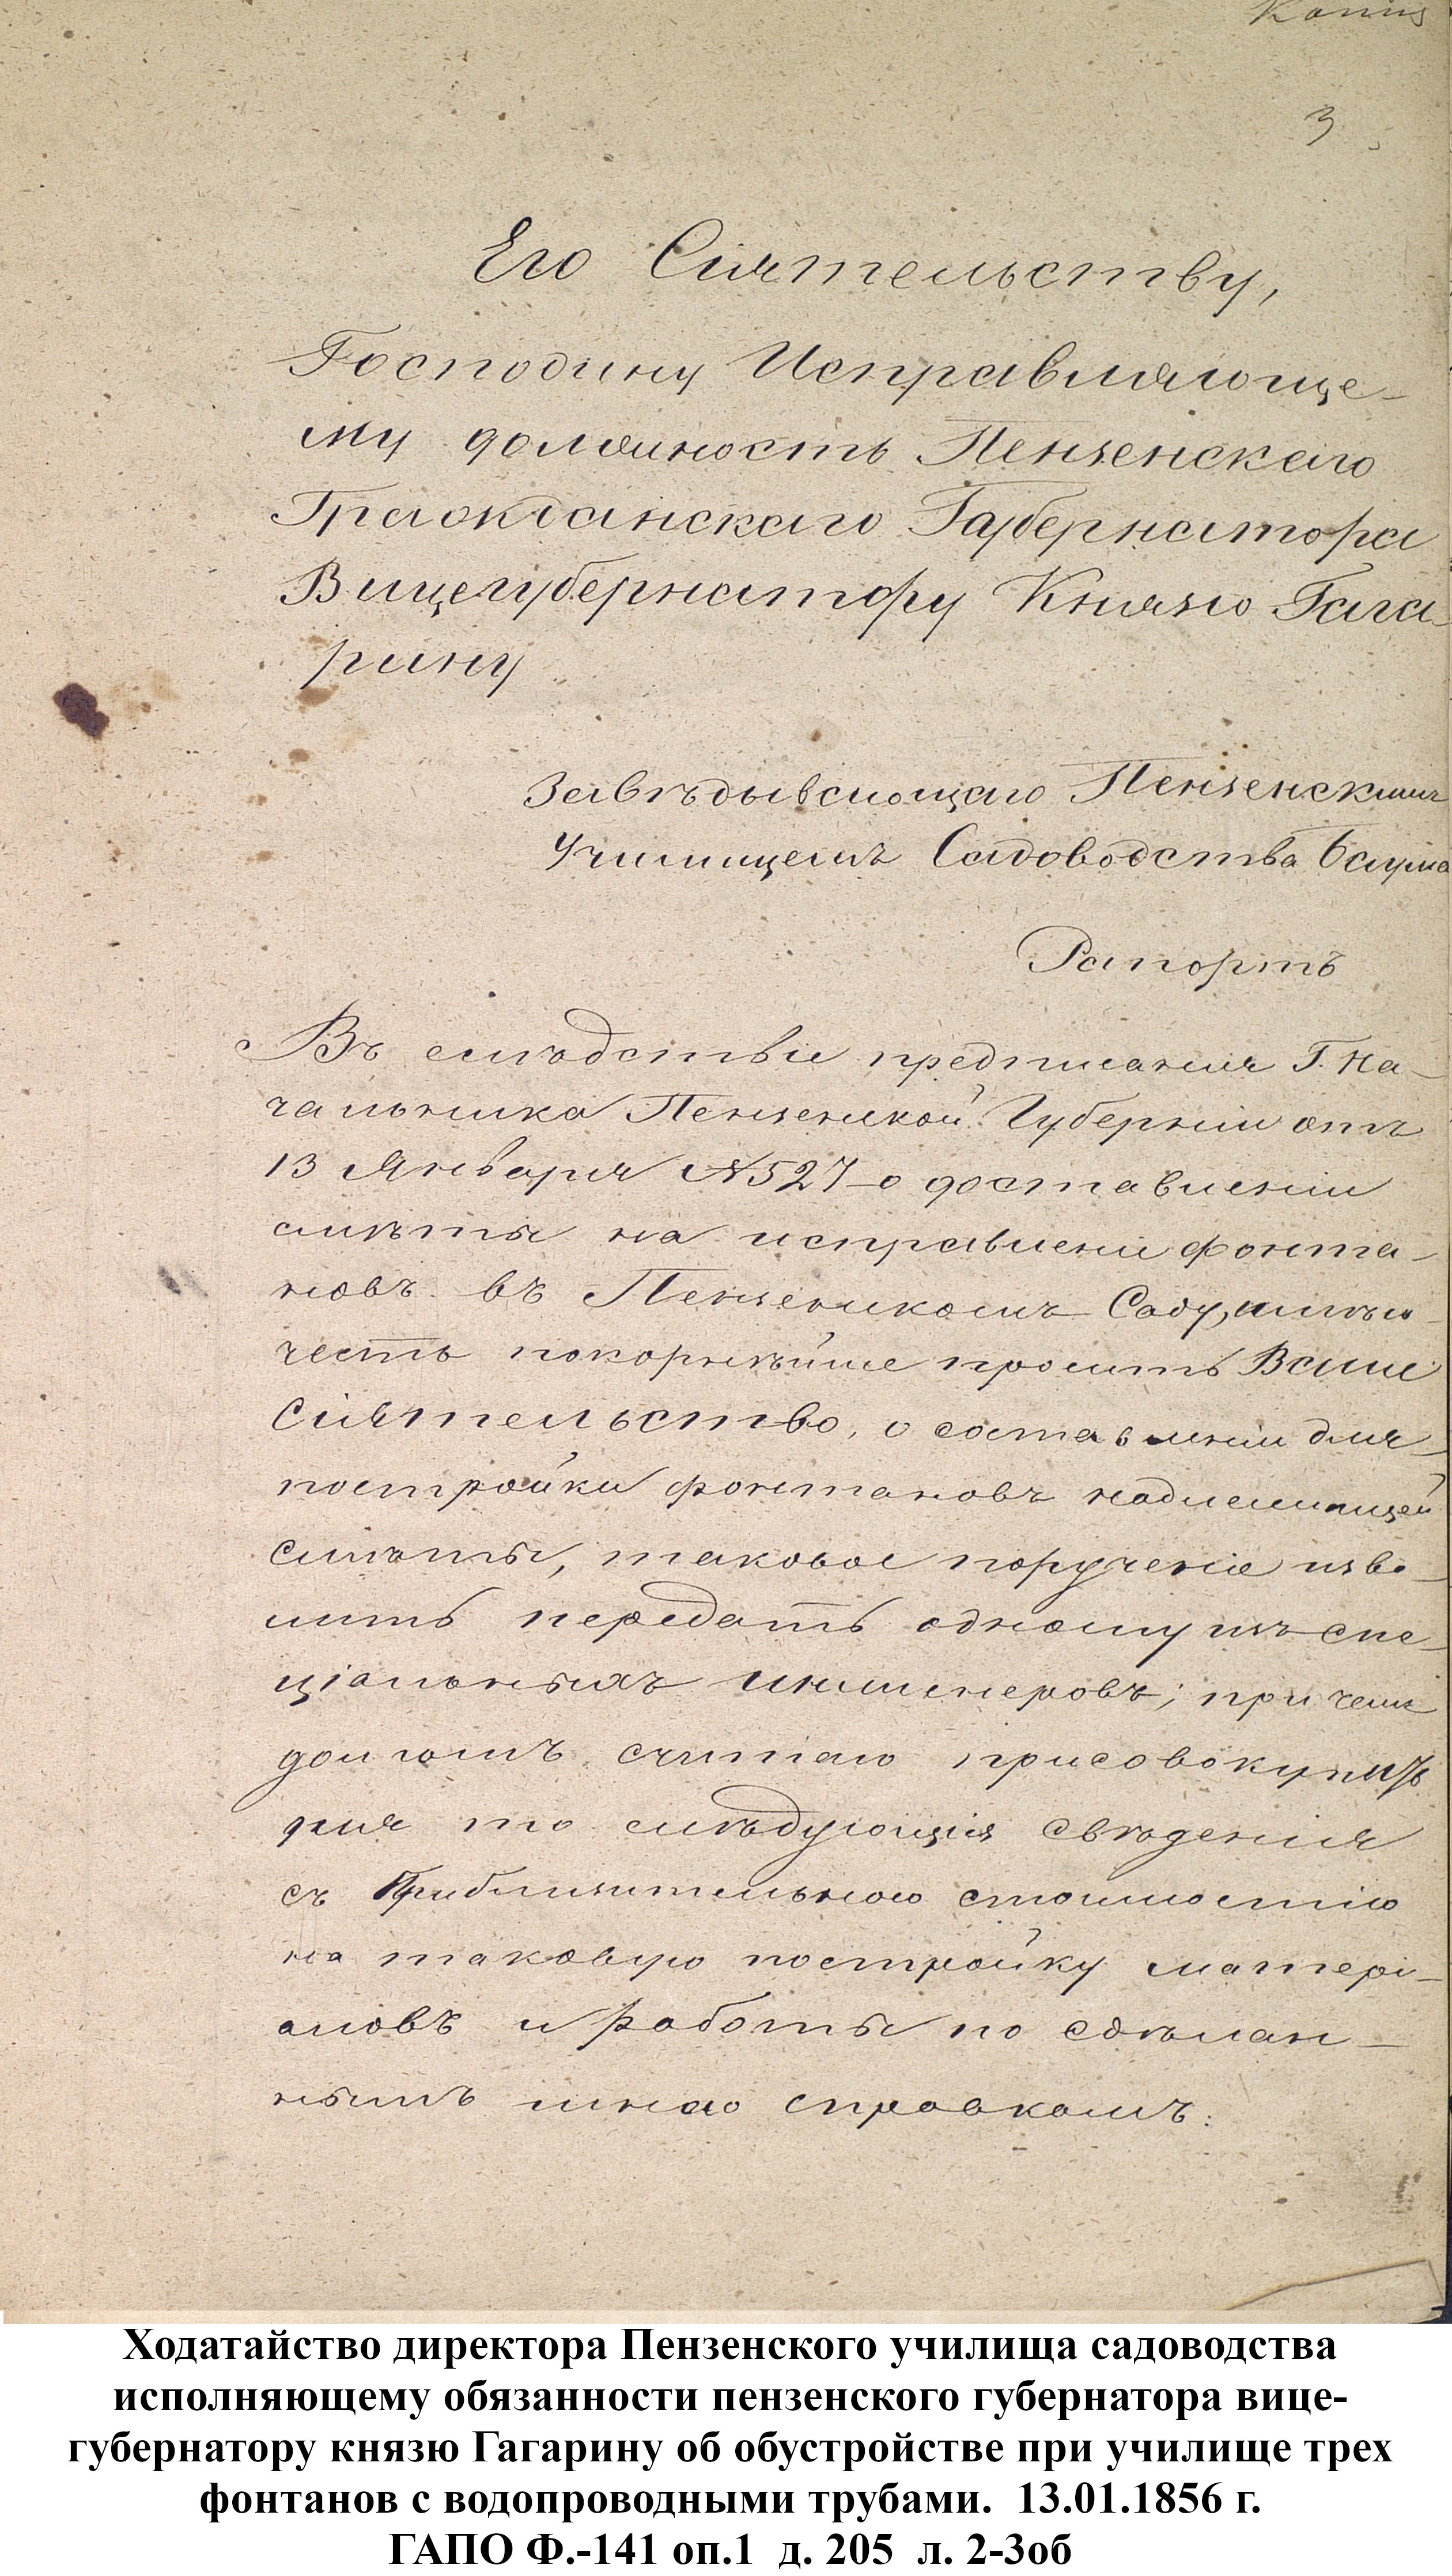 Копия
3
Его Сіятельству,
Господину Исправляюще-
му должность Пензенскаго
Гражданскаго Губернатора
Вицегубернатору Князю Гага-
рину
Завѣдывающаго Пензенскимъ
Училищемъ Садоводства Баума
Рапортъ
Въ слѣдствіи предписанія Г. На-
чальника Пензенской Губерніи отъ
13 Января №527 о доставленіи
смѣты на исправленіе фонта-
новъ въ Пензенскомъ Саду, имѣю
честь покорнѣйше просить Ваше
Сіятельство, о составленіи для
постройки фонтановъ надлежащей
смѣты, таковое порученіе изво-
лить передать одному изъ спе-
ціальныхъ инженеровъ; при чемъ
долгомъ считаю присовокупить
для то слѣдующія свѣденія
съ приблизительною стоимостію
на таковую постройку матері-
аловъ и работы по сдѣлан-
нымъ мною справкамъ:
Ходатайство директора Пензенского училища садоводства
исполняющему обязанности пензенского губернатора вице-
губернатору князю Гагарину об обустройстве при училище трех
фонтанов с водопроводными трубами. 13.01.1856 г.
ГАПО Ф.-141 оп.1 д. 205 л. 2-3об